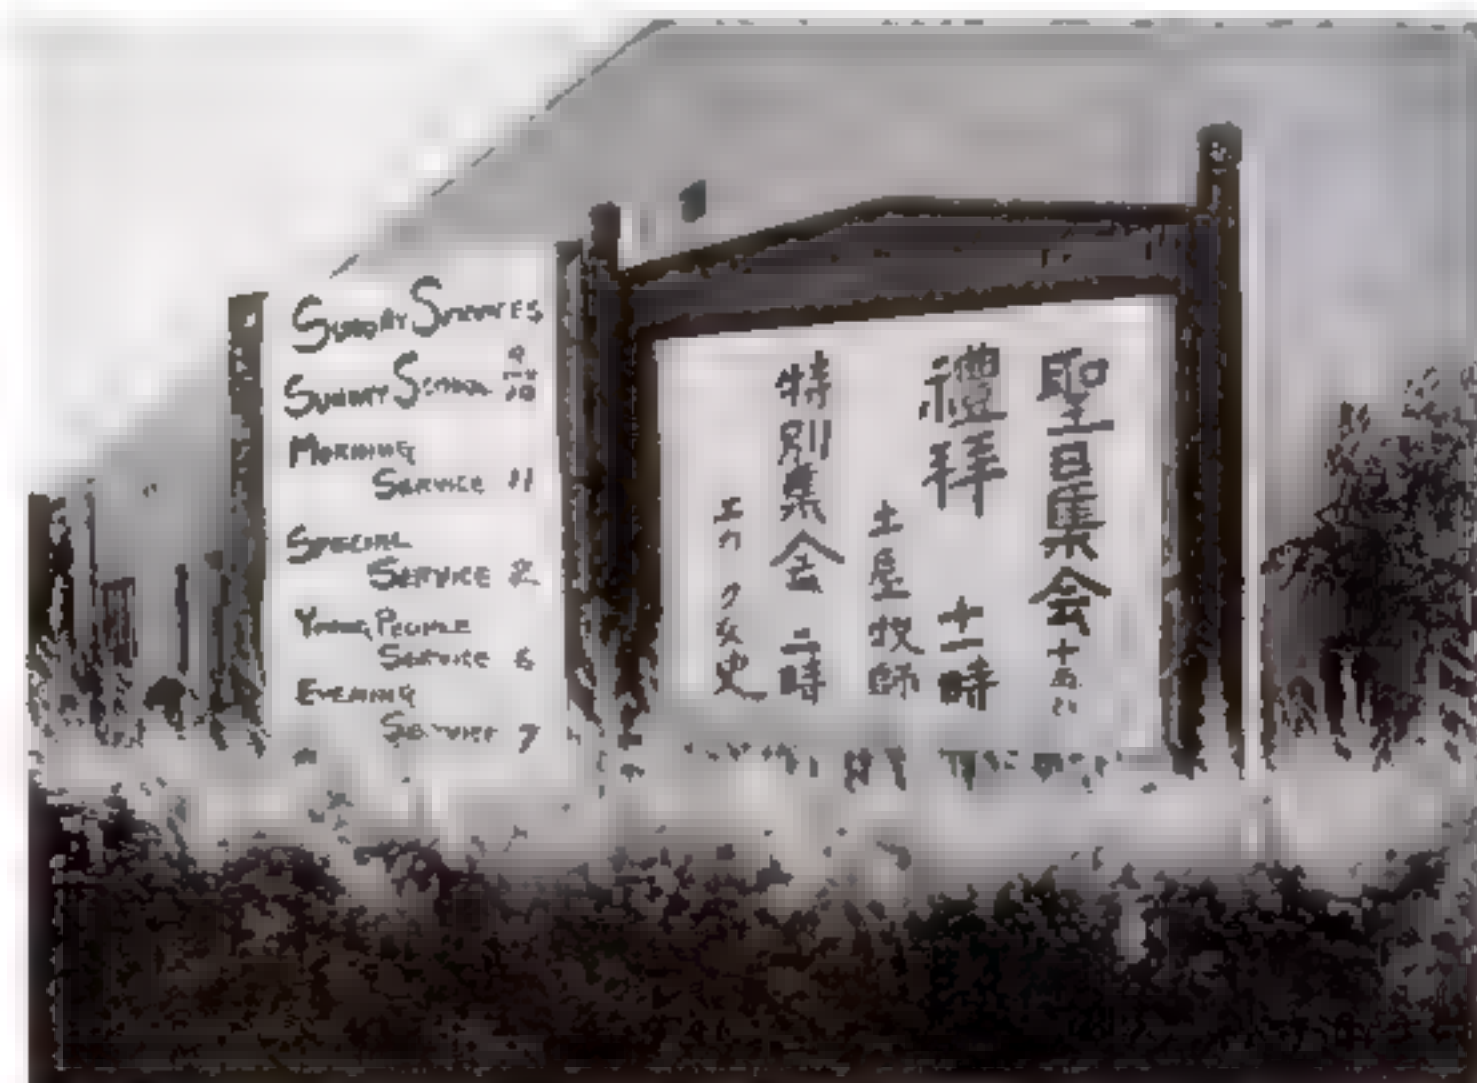 SUNDAY SERVICES
SUNDAY SCHOOL
MORNING
SERVICE 11
SPECIAL
SERVICE 2
YOUNG PEOPLE
SERVICE 6
EVENING
SERVICE 7
聖日集会
禮拝 十一時
土屋牧師
特別集会 二時
女史